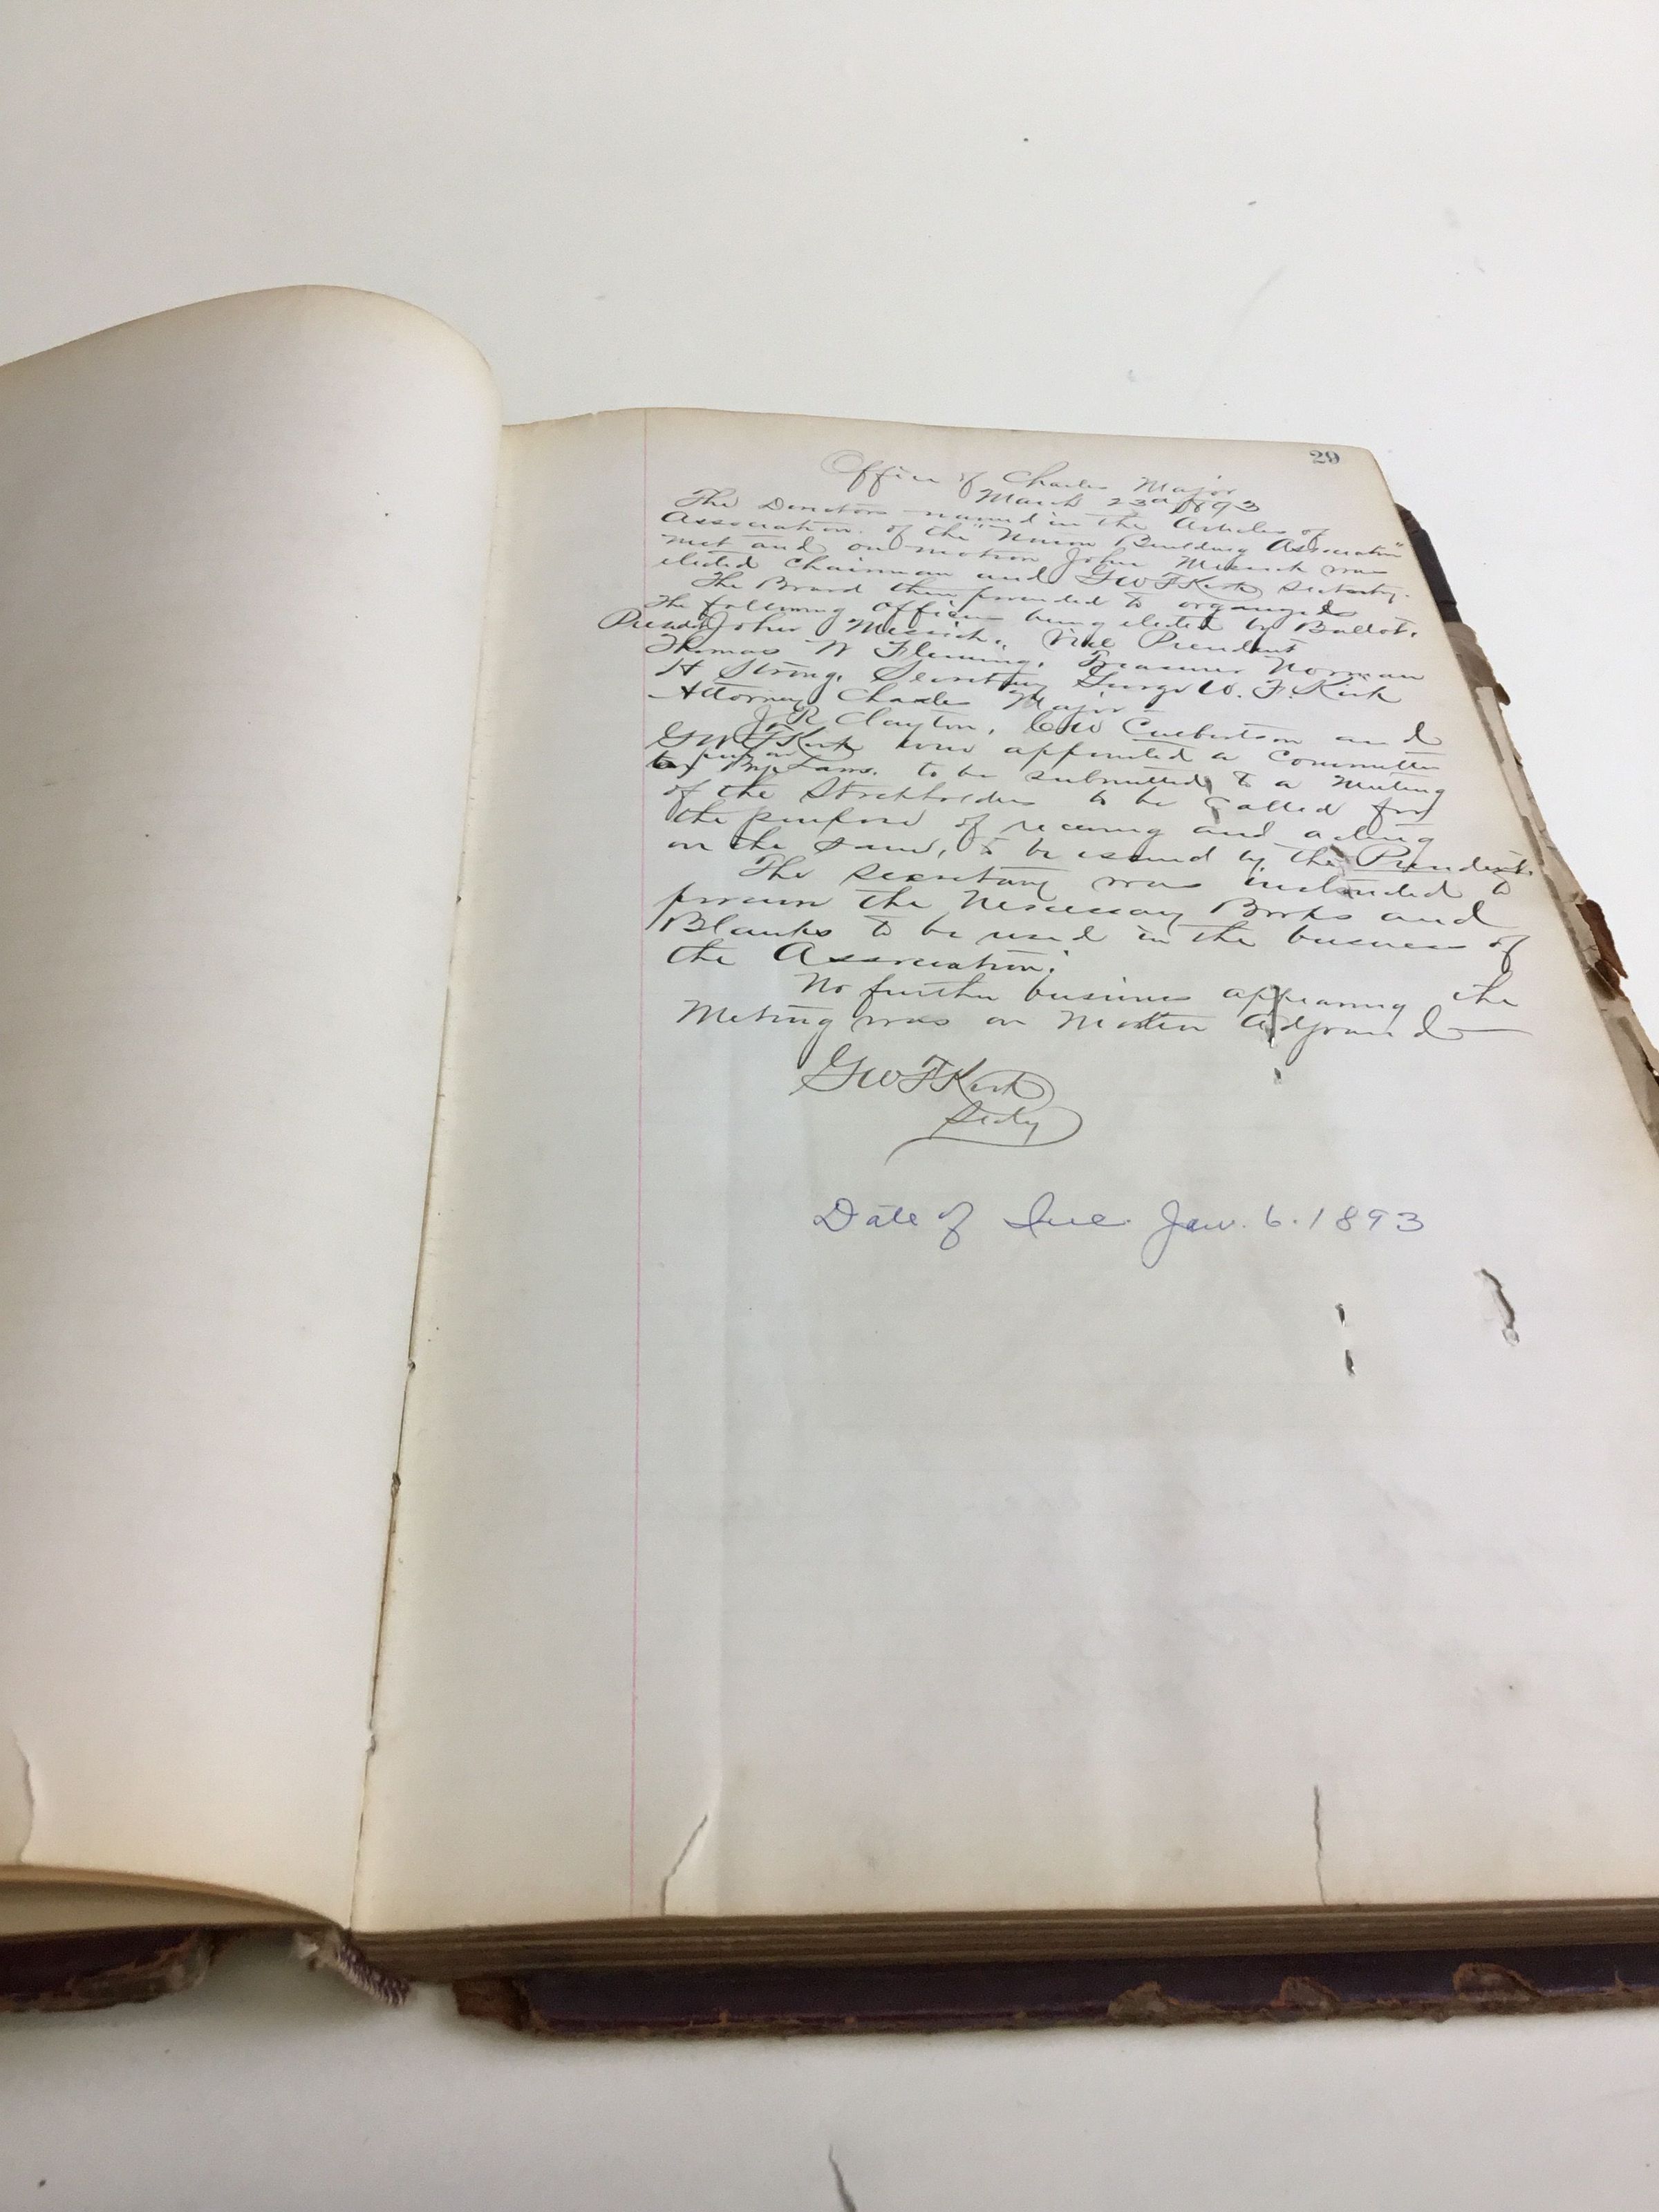 29
Office of Charles Major
March 23d 1893
The Directors named in the Articles of
Association. of the "Union Building Association"
met and on motion John Messick was
elected Chairman and GWF Kirk Secretary.
The Board then proceeded to organize
The following officers being elected by Ballot.
President John Messick. Vice President
Thomas W Fleming. Treasurer Norman
H Strong. Secretary George W. F. Kirk
Attorney Charles Major
J R Clayton, C W Culbertson and
GWF Kirk were appointed a Committee
prepare By Laws. to be submitted to a Meeting
of the Stockholders to be Called for
the purpose of receiving and acting
on the same, to be issued by the President.
The Secretary was instructed to
procure the Necessary Books and
Blanks to be used in the business of
the Association.
No further business appearing the
Meeting was on Motion Adjourned
GWF Kirk
Secty
Date of Inc. Jan. 6. 1893